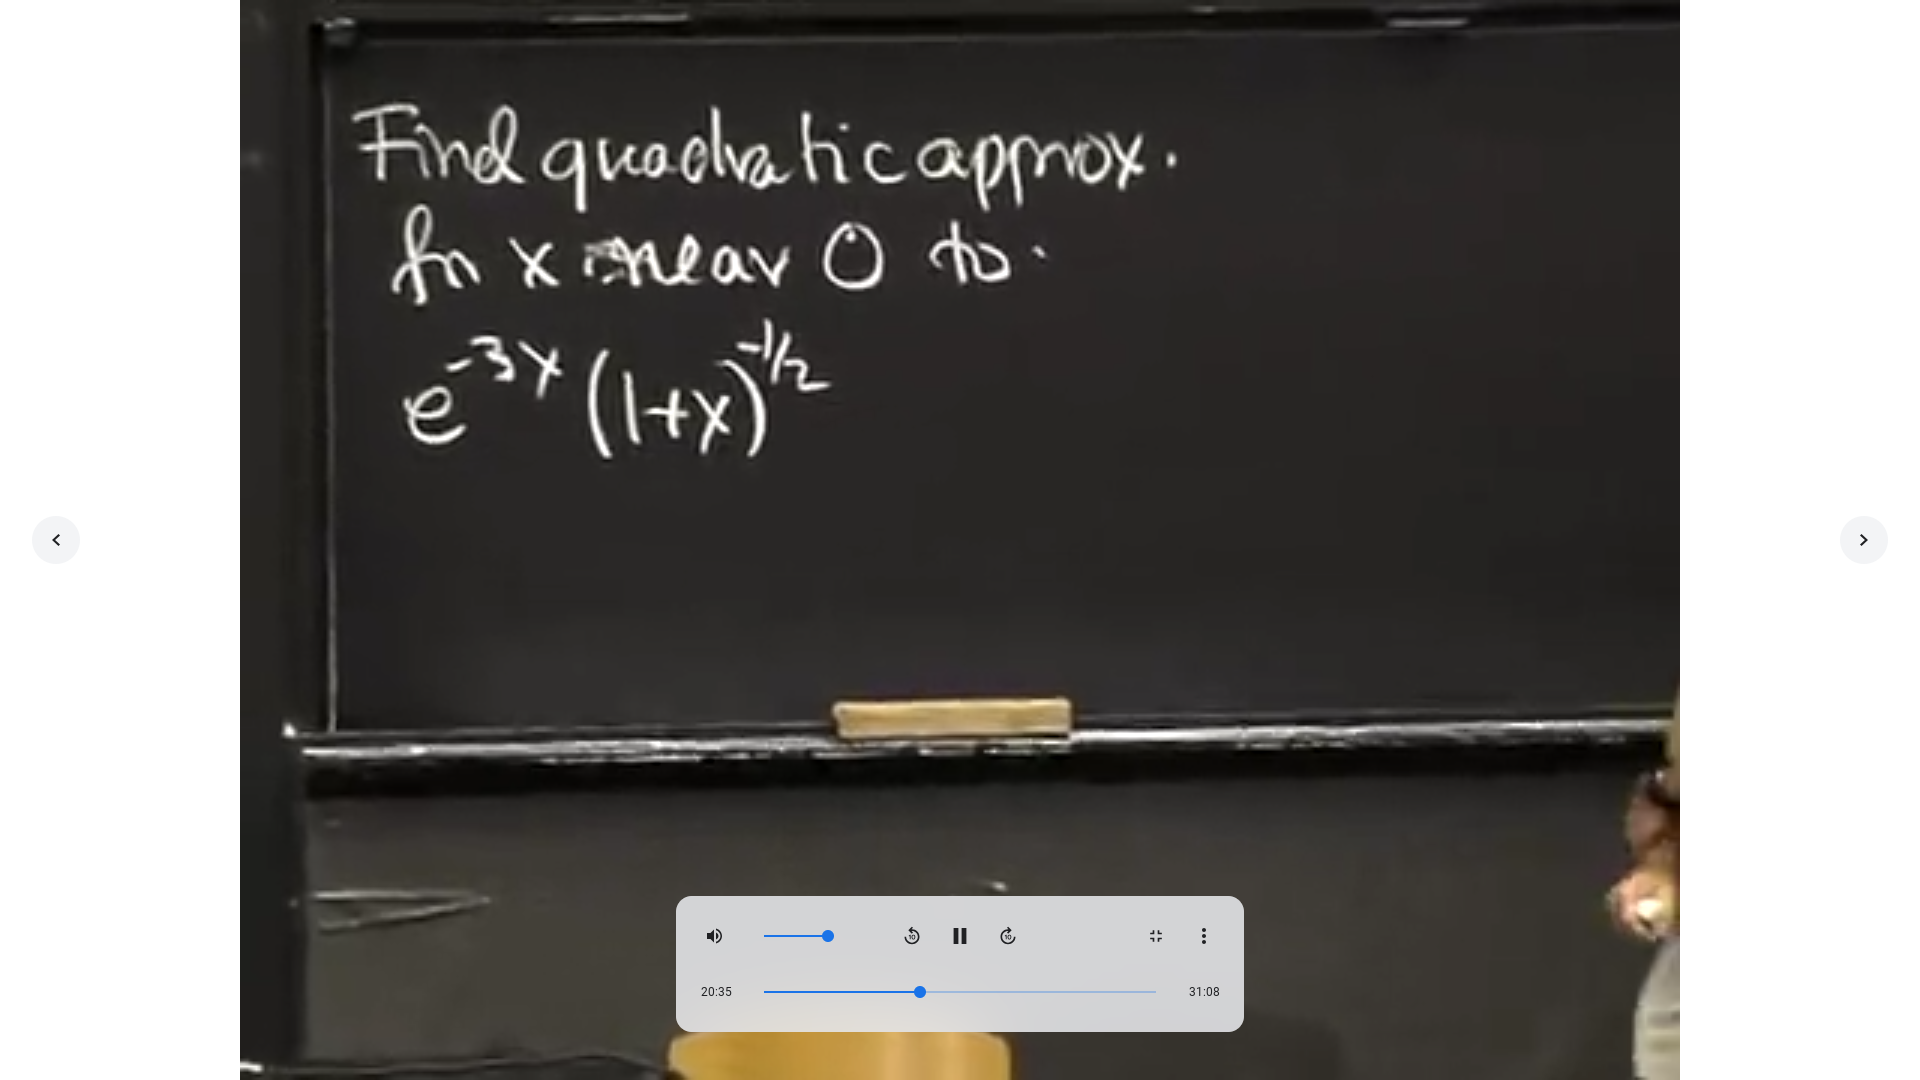 Find quadratic approx.
for x near 0 to
e^{-3x} (1+x)^{-1/2}
10
10
20:35
31:08